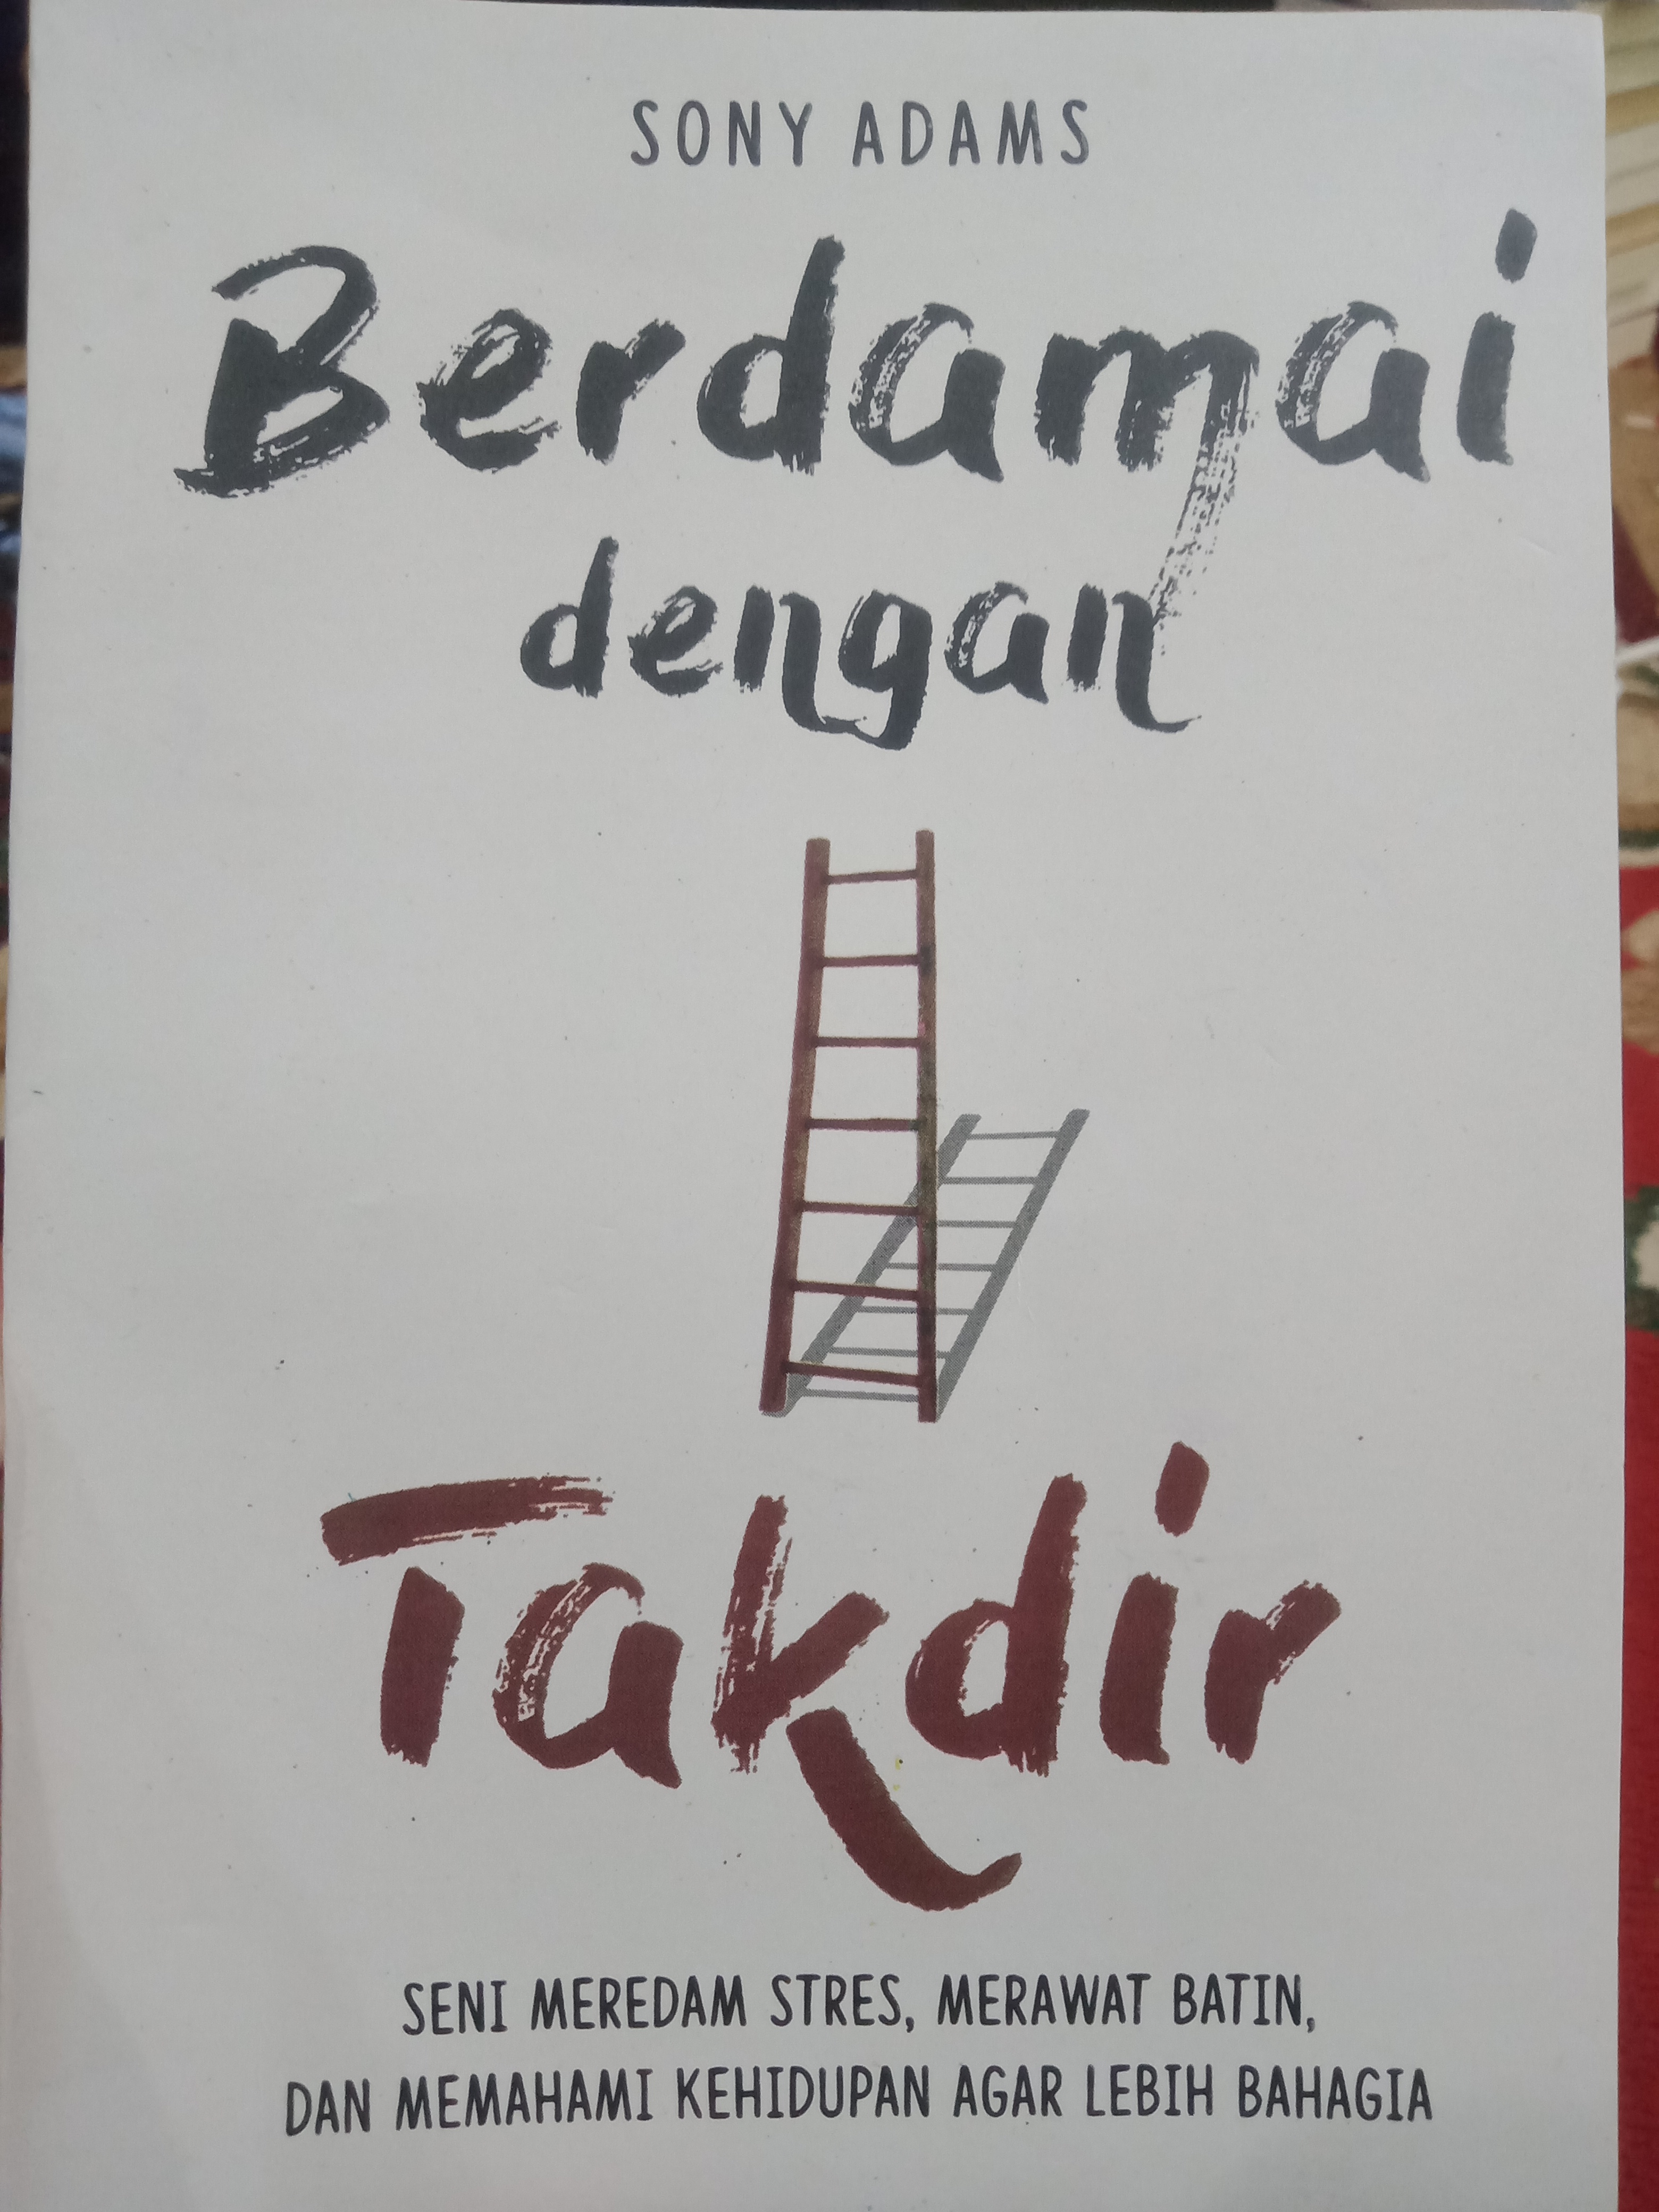 SONY ADAMS
Berdamai
dengan
Takdir
SENI MEREDAM STRES, MERAWAT BATIN,
DAN MEMAHAMI KEHIDUPAN AGAR LEBIH BAHAGIA